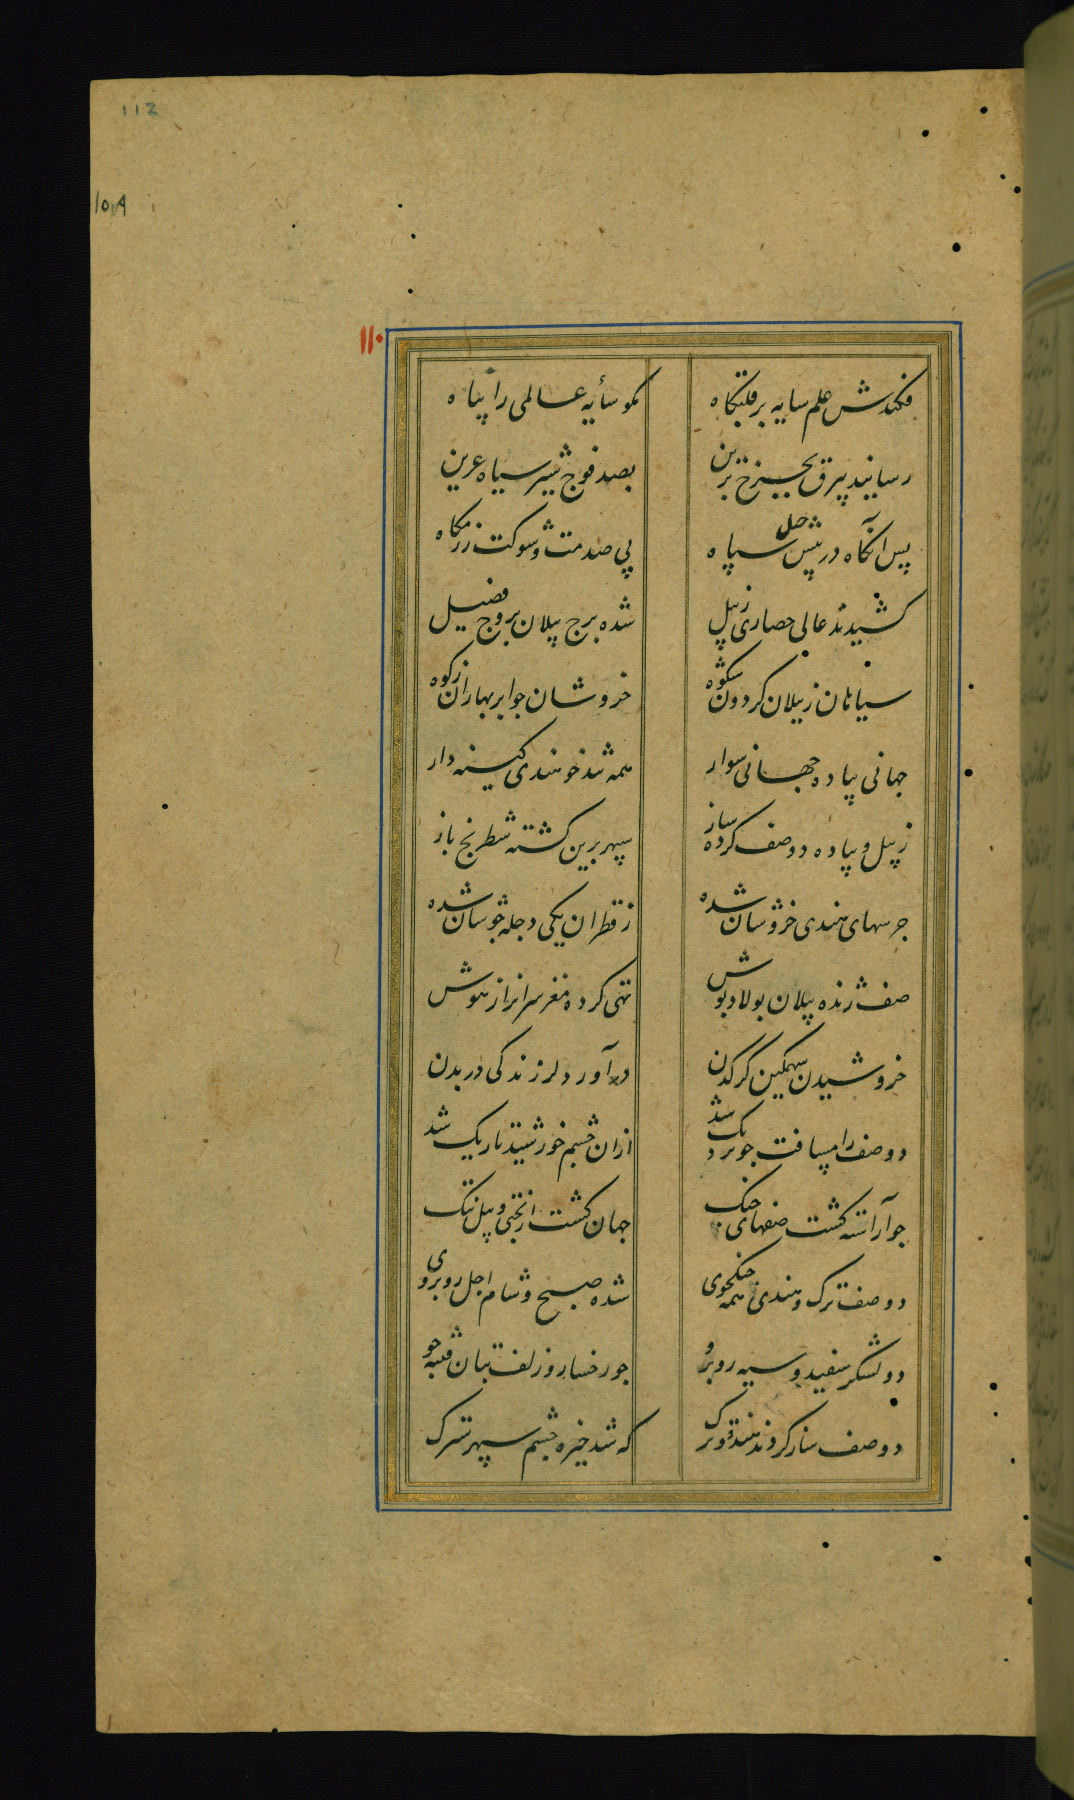 112
۱۰۸
۱۱۰
فکندش علم سایه بر قلبگاه
کو سأیه عالمی را پناه
رسانید پیرق بچرخ برین
بصد فوج شیر سیاه عرین
پس آنگاه در پیش سپاه
پی صدمت شوکت رزمگاه
کشیدند عالی حصاری ز پیل
شده برج پیلان بروج فصیل
ز پیلان کردون شکوه
خروشان جو ابر بهاران ز کوه
جهانی پیاده جهانی سوار
همه کینه دار
ز پیل و پیاده دو صف کرده ساز
سپهر برین کشته شطرنج باز
جرسهای هندی خروشان شده
ز قطران یکی دجله جوشان شده
صف ژنده پیلان پولاد پوش
تهی کرده مغز سرانرا ز هوش
خروشیدن سهمکین کرکدن
درآورد لرزندکی در بدن
دو صف را مسافت جو نزدیک شد
ازان چشم خورشید تاریک شد
جو آراسته کشت صفهای جنک
جهان کشت از بختی و پیل تنک
دو صف ترک و هندی همه جنکجوی
شده صبح و شام اجل روبروی
دو لشکر سفید و سیه روبرو
جو رخسار و زلف بتان فتنه جو
دو صف ساز کردند هندو و ترک
که شد خیره چشم سپهر سترک